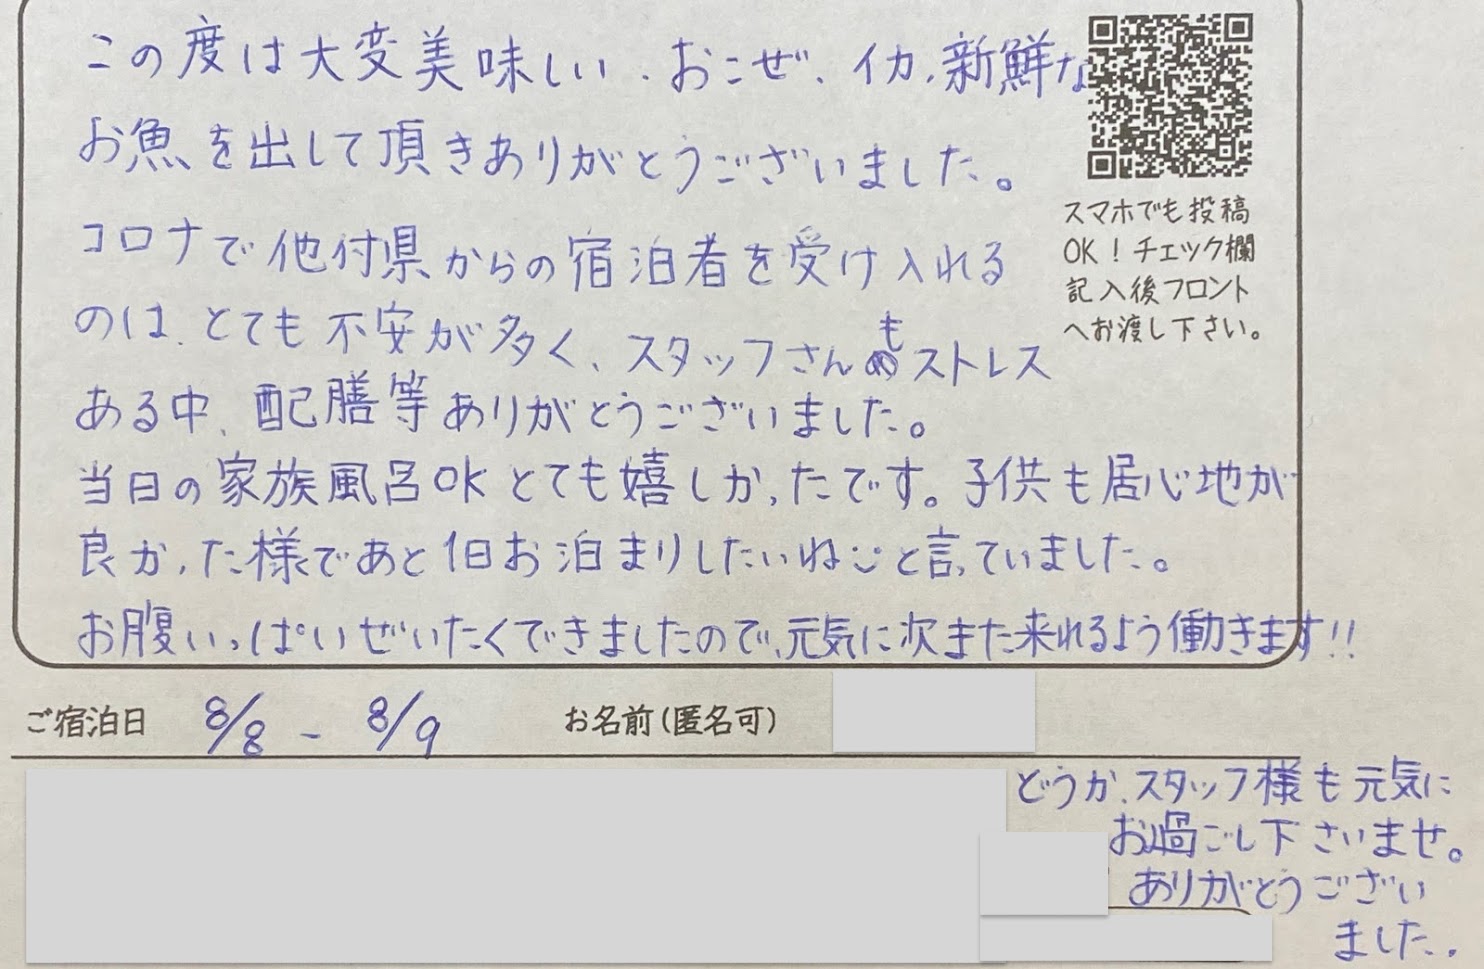 この度は大変美味しい、おこぜ、イカ、新鮮な
お魚を出して頂きありがとうございました。
コロナで他付県からの宿泊者を受け入れる
のは、とても不安が多く、スタッフさんもストレス
ある中、配膳等ありがとうございました。
当日の家族風呂OKとても嬉しかったです。子供も居心地が
良かった様であと1日お泊まりしたいねと言っていました。
お腹いっぱいぜいたくできましたので、元気に次また来れるよう働きます!!
スマホでも投稿
OK！チェック欄
記入後フロント
へお渡し下さい。
ご宿泊日 8/8 - 8/9 お名前(匿名可)
どうか、スタッフ様も元気に
お過ごし下さいませ。
ありがとうござい
ました。